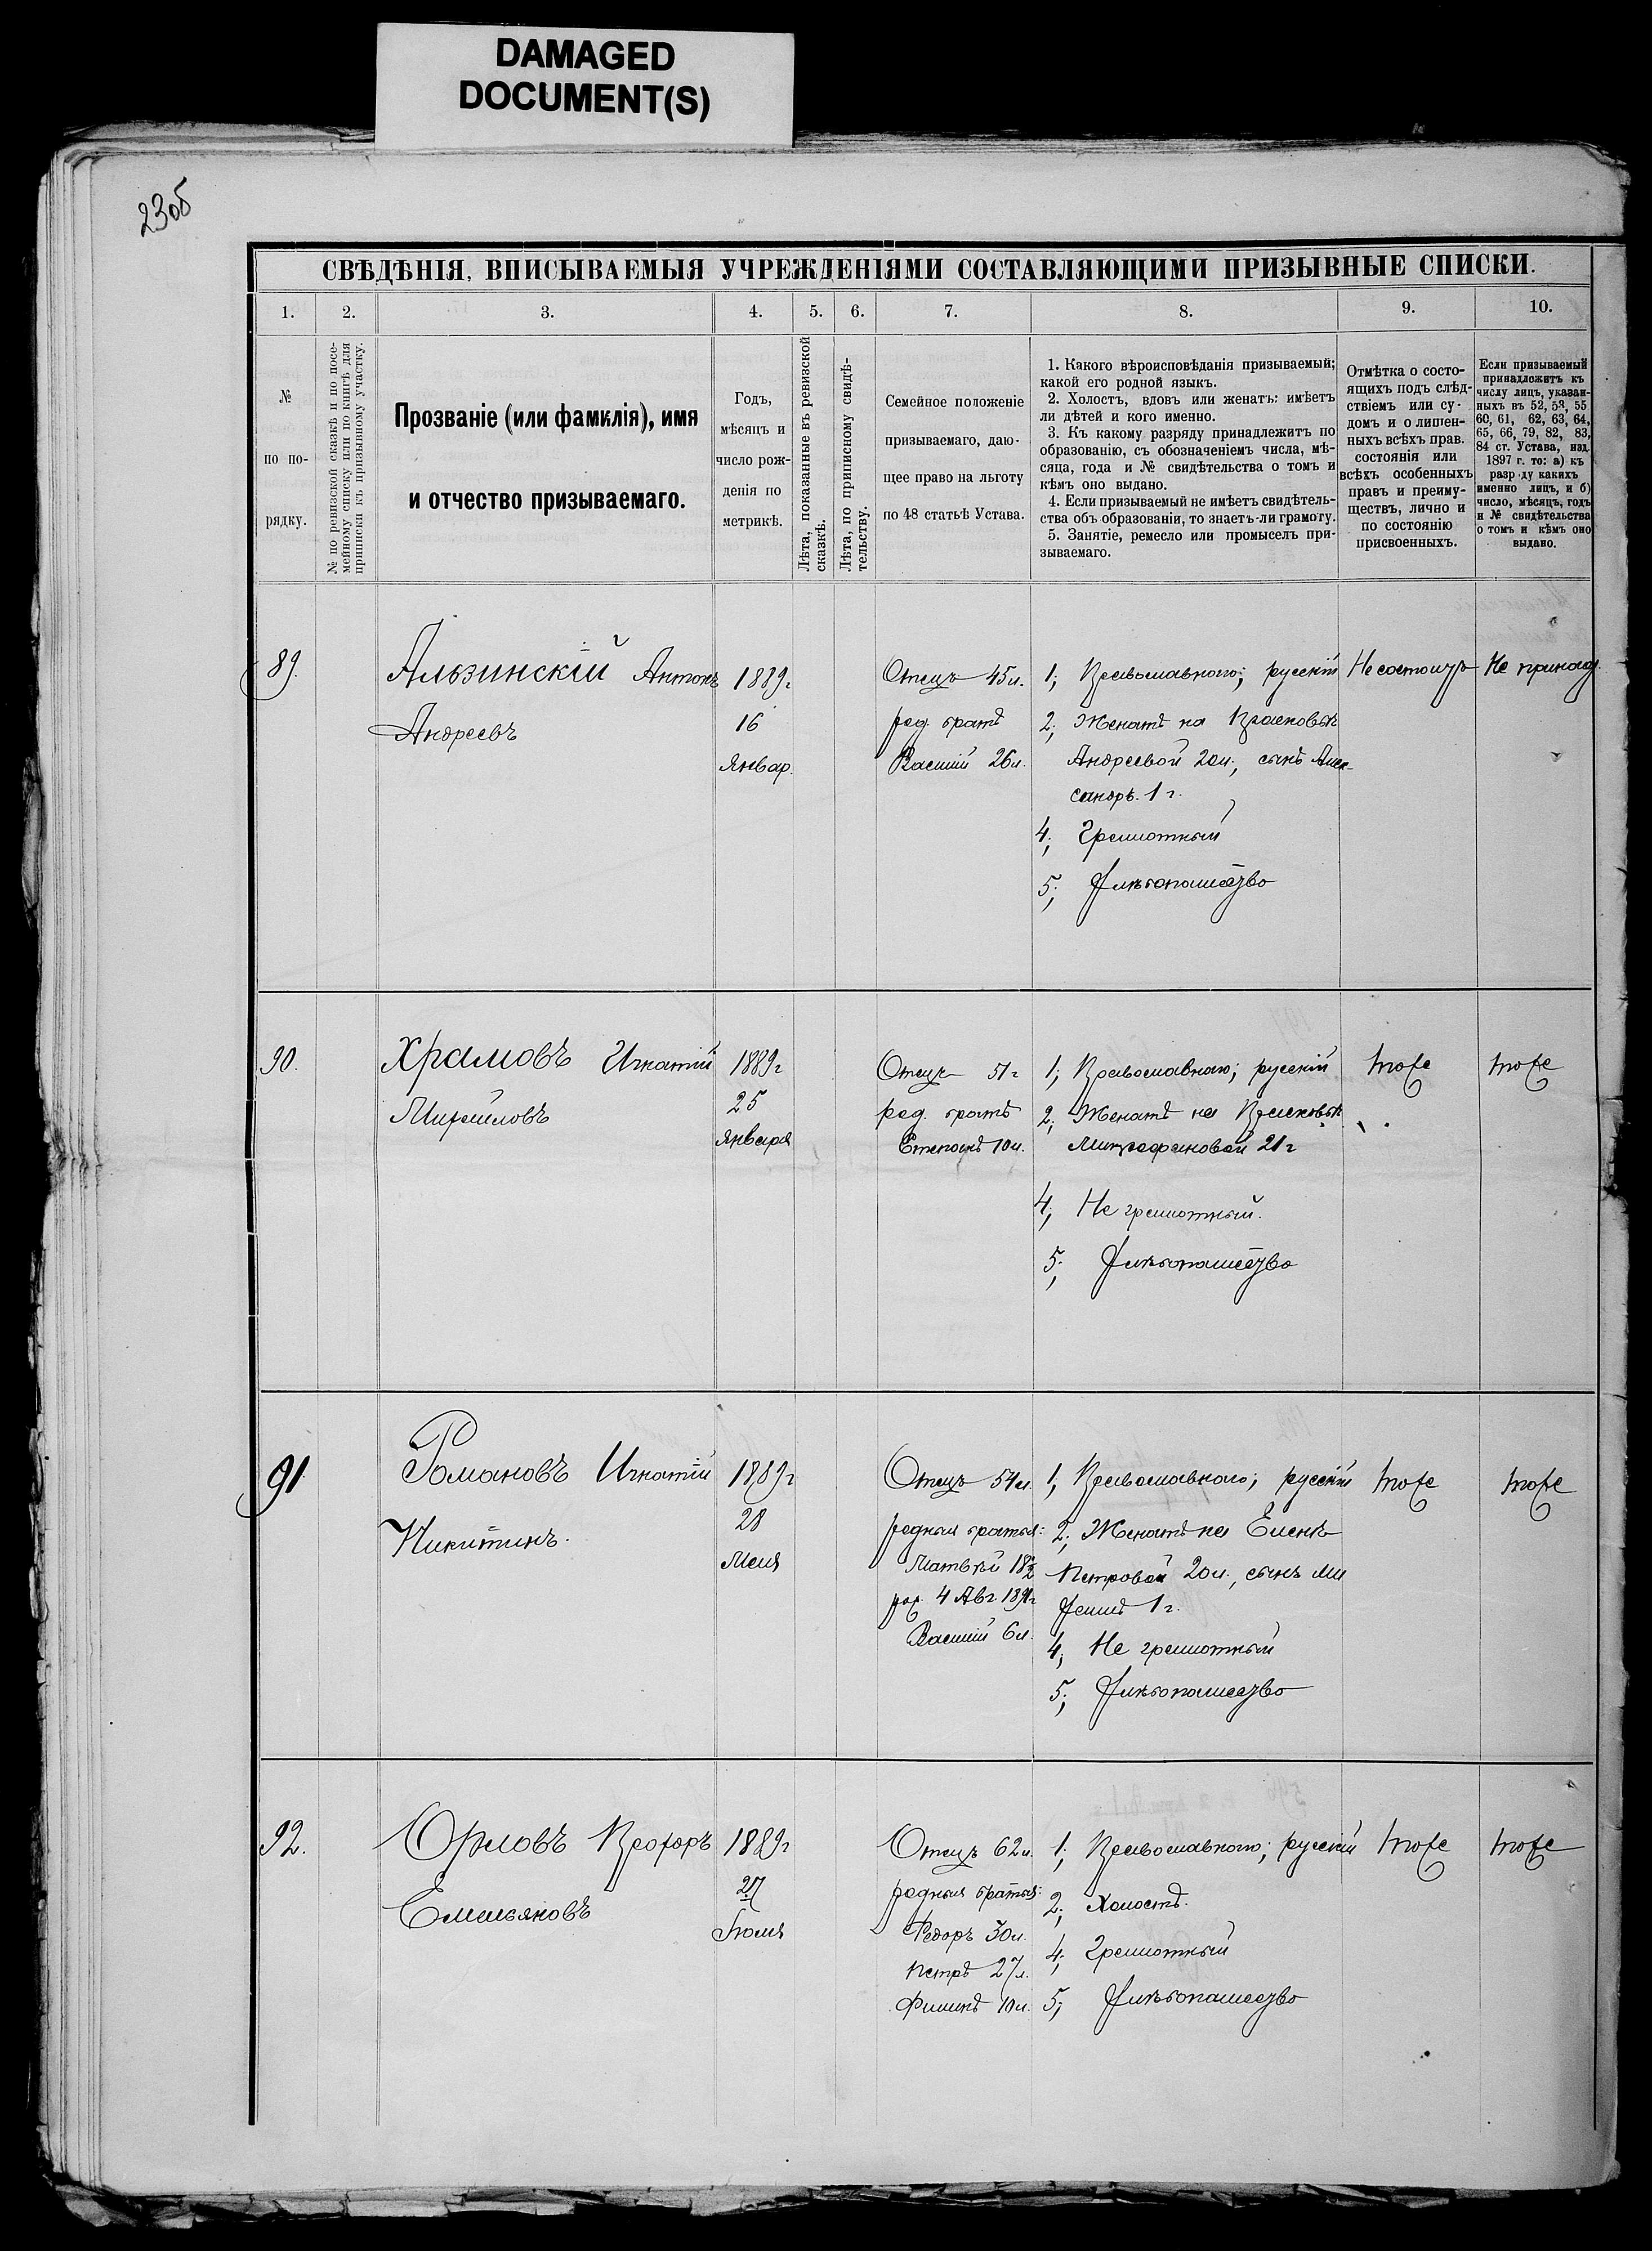 DAMAGED
DOCUMENT(S)
23об
СВѢДѢНІЯ, ВПИСЫВАЕМЫЯ УЧРЕЖДЕНІЯМИ СОСТАВЛЯЮЩИМИ ПРИЗЫВНЫЕ СПИСКИ.
1. 2. 3. 4. 5. 6. 7. 8. 9. 10.
№
по по-
рядку.
№ по ревизской сказкѣ и по посе-
мейному списку или по книгѣ для
приписки къ призывному участку.
Прозваніе (или фамилія), имя
и отчество призываемаго.
Годъ,
мѣсяцъ и
число рож-
денія по
метрикѣ.
Лѣта, показанные въ ревизской
сказкѣ.
Лѣта, по приписному свидѣ-
тельству.
Семейное положеніе
призываемаго, даю-
щее право на льготу
по 48 статьѣ Устава.
1. Какого вѣроисповѣданія призываемый;
какой его родной языкъ.
2. Холостъ, вдовъ или женатъ: имѣетъ
ли дѣтей и кого именно.
3. Къ какому разряду принадлежитъ по
образованію, съ обозначеніемъ числа, мѣ-
сяца, года и № свидѣтельства о томъ и
кѣмъ оно выдано.
4. Если призываемый не имѣетъ свидѣтель-
ства объ образованіи, то знаетъ-ли грамоту.
5. Занятіе, ремесло или промыселъ при-
зываемаго.
Отмѣтка о состо-
ящихъ подъ слѣд-
ствіемъ или су-
домъ и о лишен-
ныхъ всѣхъ прав.
состоянія или
всѣхъ особенныхъ
правъ и преиму-
ществъ, лично и
по состоянію
присвоенныхъ.
Если призываемый
принадлежитъ къ
числу лицъ, указан-
ныхъ въ 52, 53, 55
60, 61, 62, 63, 64,
65, 66, 79, 82, 83,
84 ст. Устава, изд.
1897 г. то: а) къ
разр ду какихъ
именно лицъ, и б)
число, мѣсяцъ, годъ
и № свидѣтельства
о томъ и кѣмъ оно
выдано.
89.
Альзинскій Антонъ
Андреевъ
1889г
16
Январ.
Отецъ 45л.
род. братъ
Василій 26л.
1; Православнаго; русскій
2; Женатъ на Прасковьѣ
Андреевой 20л., сынъ Алек-
сандръ. 1 г.
4; Грамотный
5; Хлѣбопашество
Не состоитъ
Не принад.
90.
Храмовъ Игнатій
Михайловъ
1889г
25
Января
Отецъ 51г
род. братъ
Степанъ 10л.
1; Православнаго; русскій
2; Женатъ на Прасковьѣ
Митрофановой 21г
4; Не грамотный.
5; Хлѣбопашество
тоже
тоже
91
Романовъ Игнатій
Никитинъ.
1889г
28
Мая
Отецъ 54л.
родныя братья:
Матвѣй 18½
рож. 4 Авг. 1891г
Василій 6л.
1; Православнаго; русскій
2; Женатъ на Еленѣ
Петровой 20л., сынъ Ми
хаилъ 1 г.
4; Не грамотный
5; Хлѣбопашество
тоже
тоже
92.
Орловъ Прохоръ
Емельяновъ
1889г
27
Іюля
Отецъ 62л.
родныя братья:
Федоръ 30л.
Петръ 27л.
Филипъ 10л.
1; Православнаго; русскій
2; Холостъ.
4; Грамотный
5; Хлѣбопашество
тоже
тоже